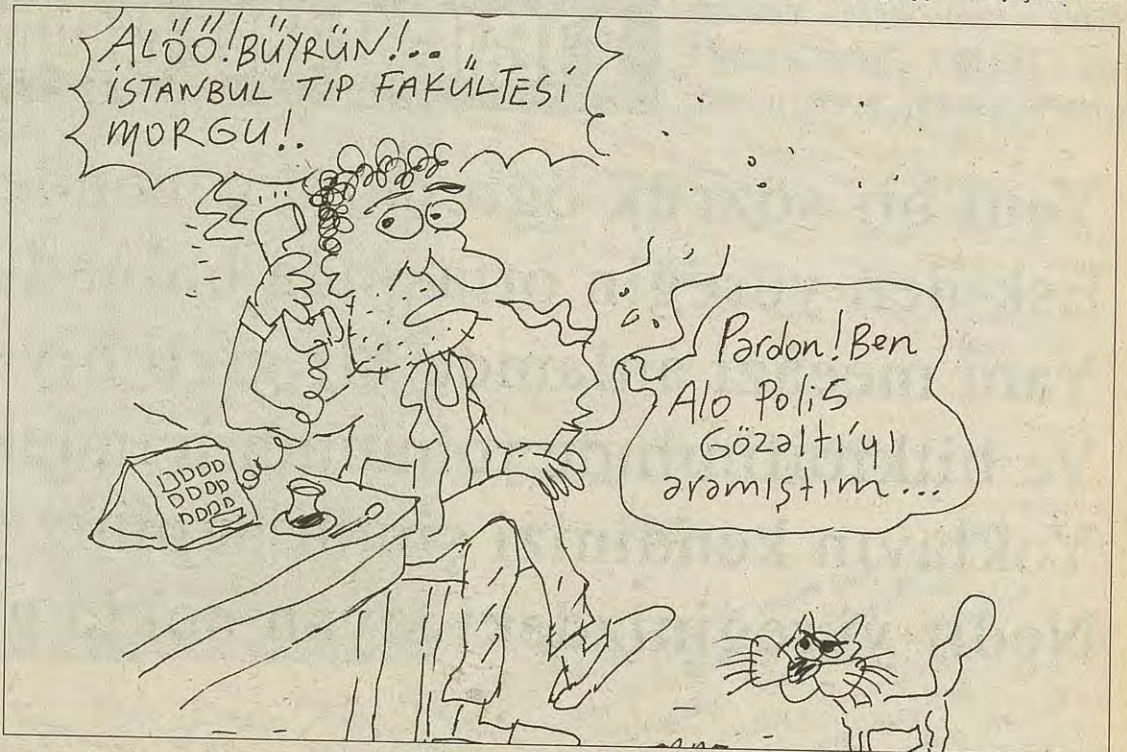 ALÖÖ! BÜYRÜN!..
İSTANBUL TIP FAKÜLTESİ
MORGU!.
Pardon! Ben
Alo Polis
Gözaltı'yı
aramıştım...